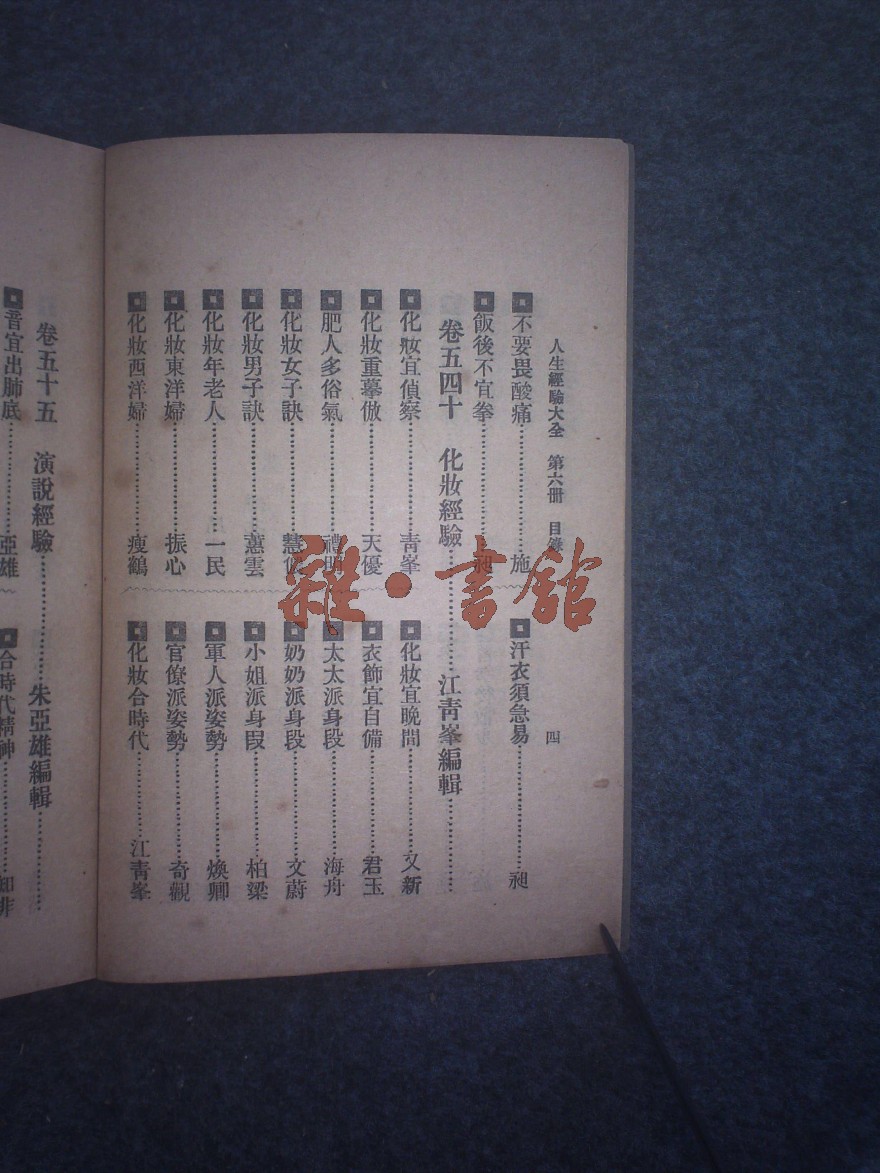 人生經驗大全　第六冊　目錄　四
不要畏酸痛……施
飯後不宜拳……昶
汗衣須急易……昶
卷五四十　化妝經驗……江青峯編輯
化妝宜偵察……青峯
化妝重摹倣……天優
肥人多俗氣……禮明
化妝女子訣……慧
化妝男子訣……蕙雲
化妝年老人……一民
化妝東洋婦……振心
化妝西洋婦……瘦鶴
化妝宜晚間……又新
衣飾宜自備……君玉
太太派身段……海舟
奶奶派身段……文蔚
小姐派身段……柏梁
軍人派姿勢……煥卿
官僚派姿勢……奇觀
化妝合時代……江青峯
卷五十五　演說經驗……朱亞雄編輯
音宜出肺底……亞雄
合時代精神……知非
雜·書館